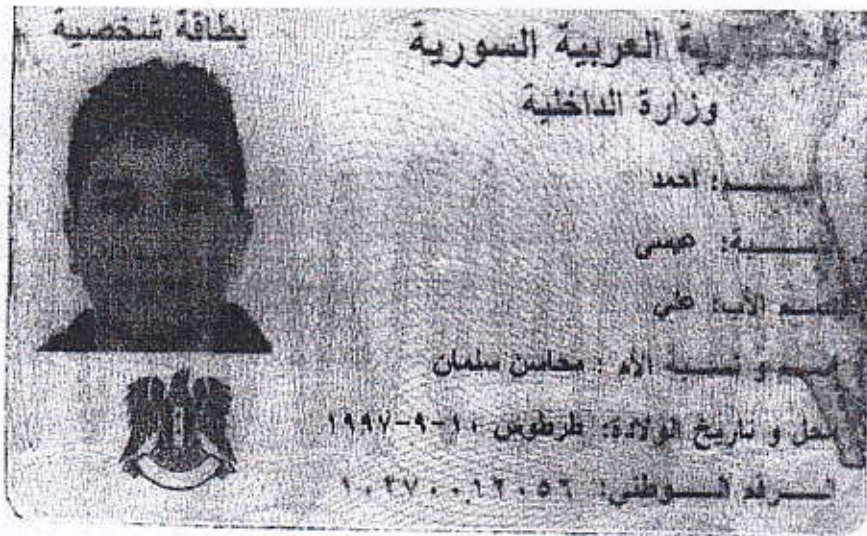 بطاقة شخصية
الجمهورية العربية السورية
وزارة الداخلية
الاســـم: احمد
النســـبة: عيسى
اســم الأب: علي
اسم و نسبة الأم : محاسن سلمان
محل و تاريخ الولادة: طرطوس ١٠-٩-١٩٩٧
الــرقم الــوطني: